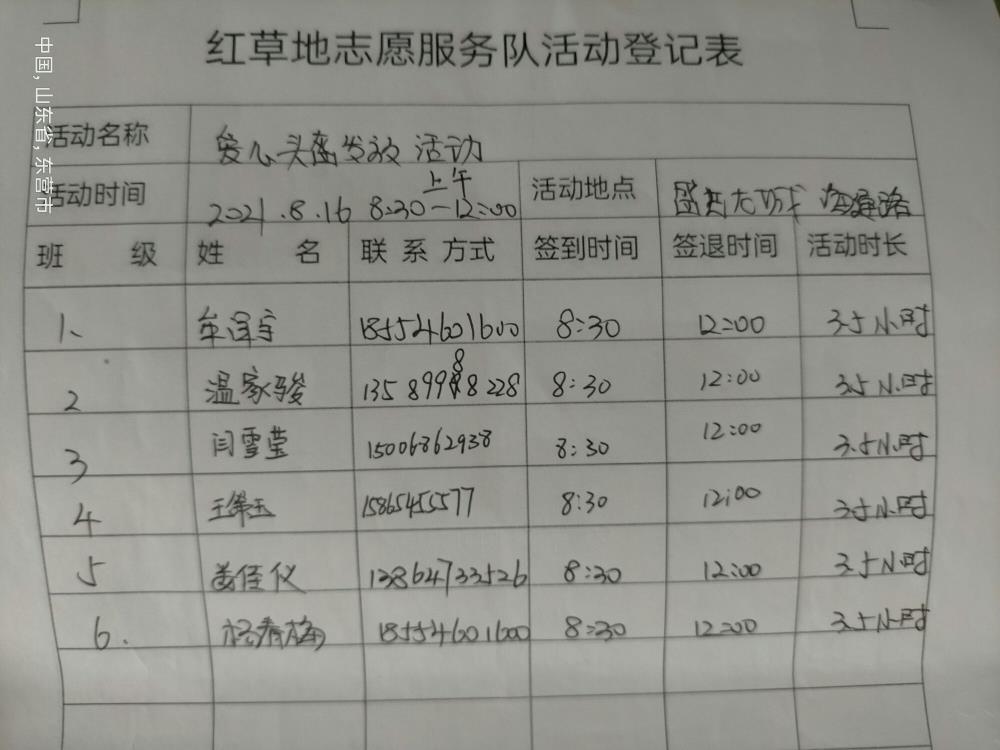 中国,山东省,东营市
红草地志愿服务队活动登记表
活动名称 爱心头盔发放活动
活动时间 2021.8.16 上午 8:30-12:00 活动地点
班 级 姓 名 联系方式 签到时间 签退时间 活动时长
1、 牟泽宇 18554601600 8:30 12:00 3.5小时
2 温家骏 13589988228 8:30 12:00 3.5小时
3 闫雪莹 15006862938 8:30 12:00 3.5小时
4 王 15865455577 8:30 12:00 3.5小时
5 姜侄仪 13864733526 8:30 12:00 3.5小时
6. 杨春梅 18554601600 8:30 12:00 3.5小时